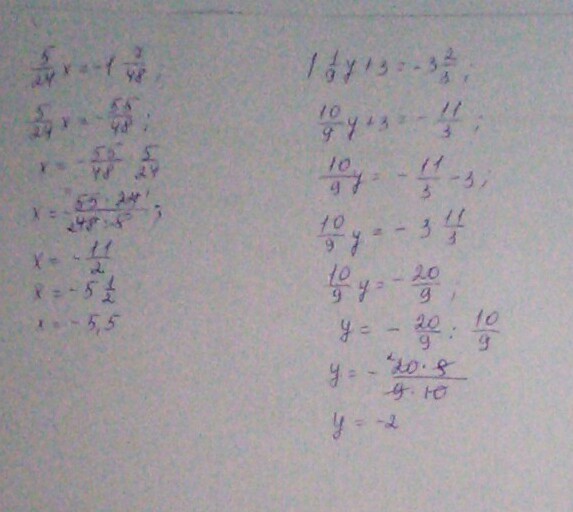 5/24 x = -1 7/48;
5/24 x = - 55/48;
x = - 55/48 : 5/24
x = - 55 · 24/48 · 5;
x = - 11/2
x = - 5 1/2
x = - 5,5
1 1/9 y + 3 = - 3 2/3;
10/9 y + 3 = - 11/3;
10/9 y = - 11/3 - 3;
10/9 y = - 3 11/3
10/9 y = - 20/9;
y = - 20/9 : 10/9
y = - 20 · 9/9 · 10
y = -2